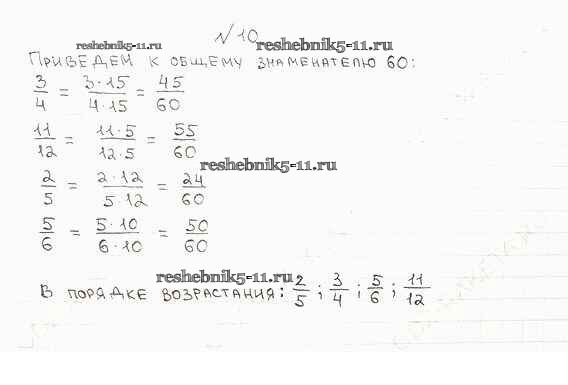 № 10
reshebnik5-11.ru reshebnik5-11.ru
ПРИВЕДЕМ К ОБЩЕМУ ЗНАМЕНАТЕЛЮ 60:
3/4 = 3·15/4·15 = 45/60
11/12 = 11·5/12·5 = 55/60
reshebnik5-11.ru
2/5 = 2·12/5·12 = 24/60
5/6 = 5·10/6·10 = 50/60
reshebnik5-11.ru
В ПОРЯДКЕ ВОЗРАСТАНИЯ: 2/5 ; 3/4 ; 5/6 ; 11/12